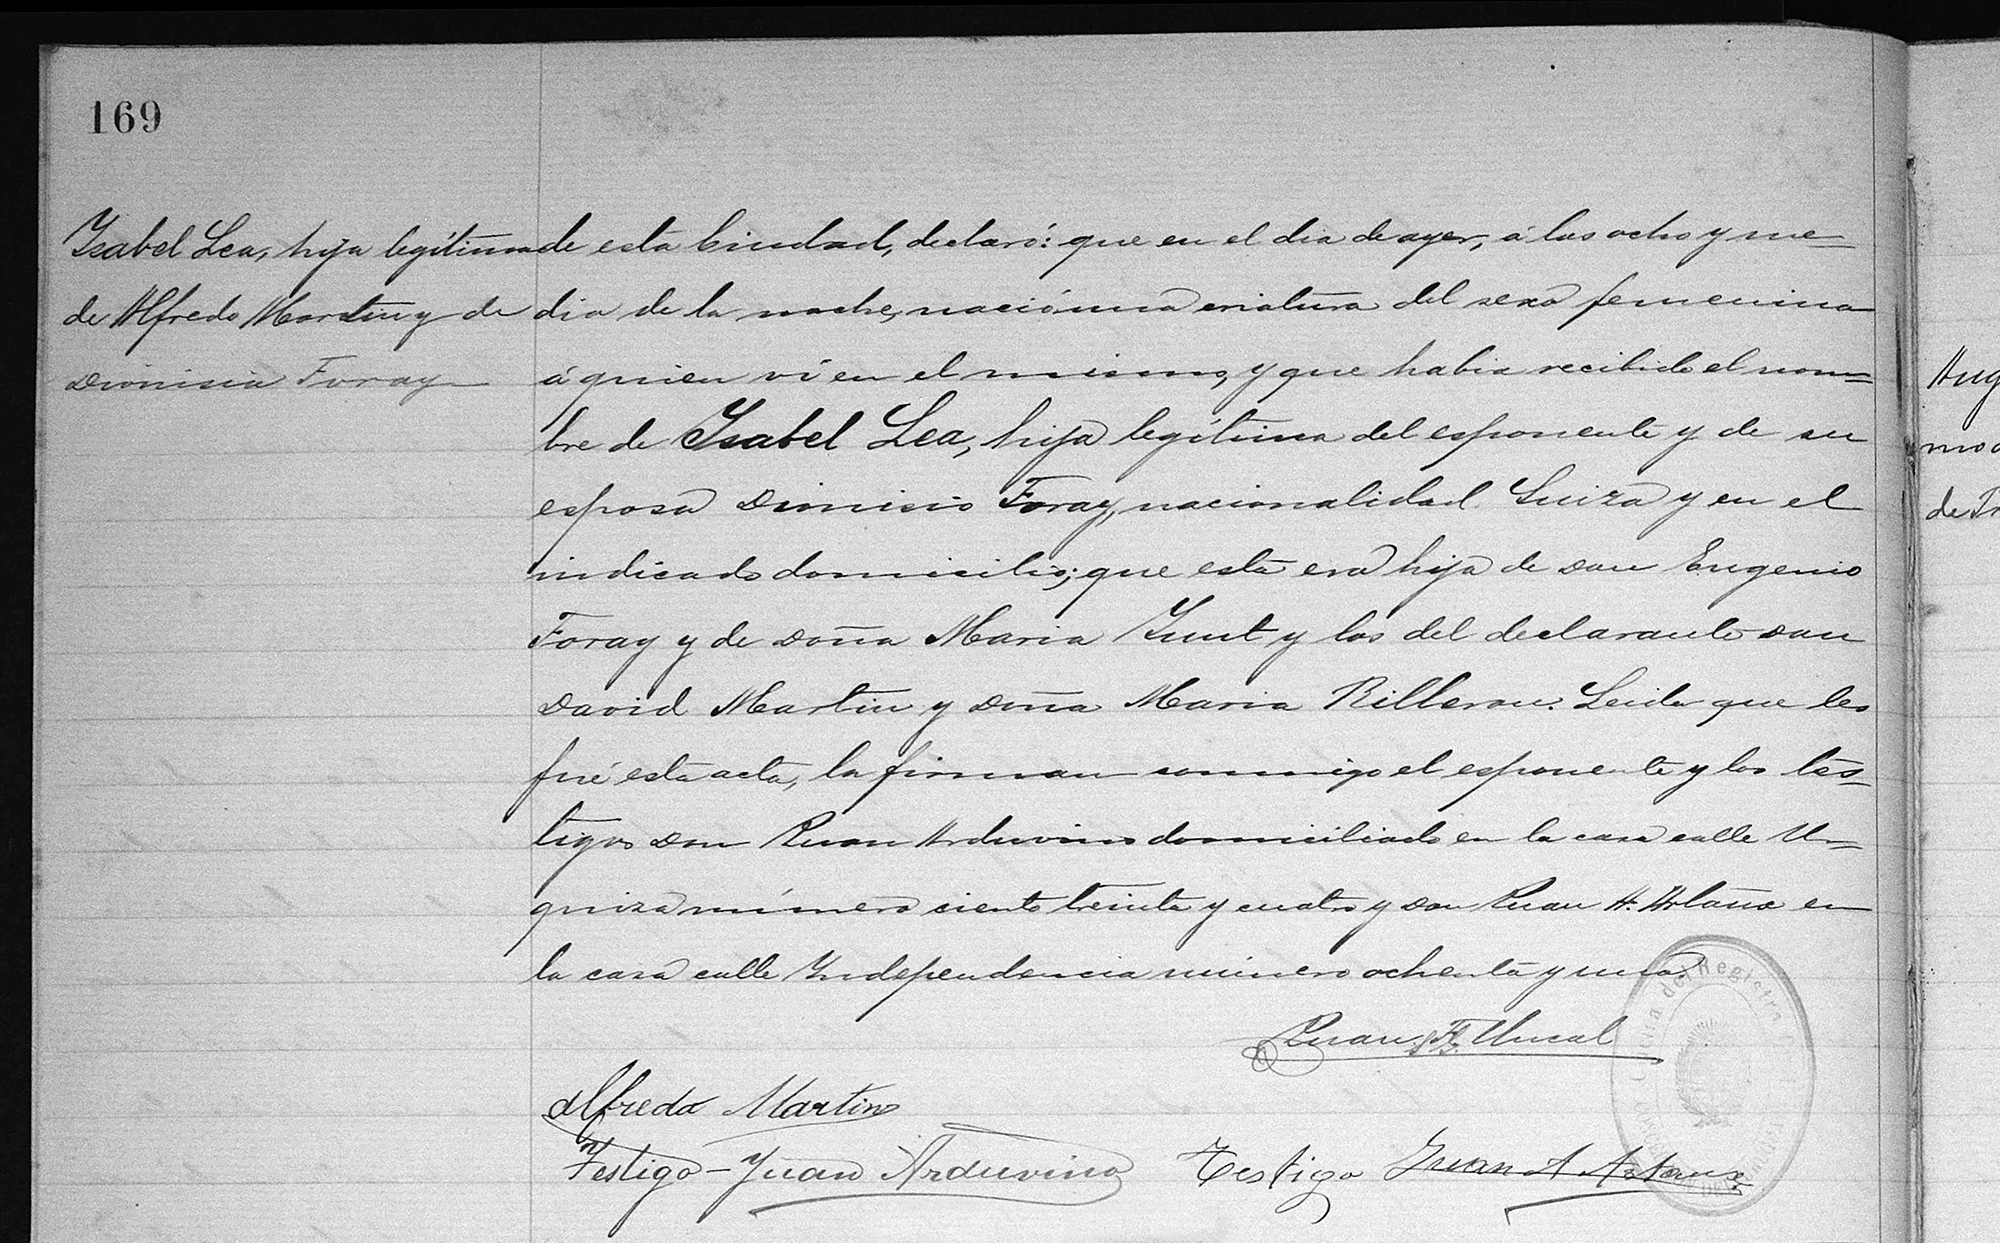 169
Isabel Lea, hija legítima
de Alfredo Martin y de
Dionisia Foray
de esta Ciudad, declaró: que en el dia de ayer, á las ocho y me=
dia de la noche, nació una criatura del sexo femenino
á quien ví en el mismo, y que habia recibido el nom=
bre de Isabel Lea, hija legítima del esponente y de su
esposa Dionisia Foray, nacionalidad Suiza y en el
indicado domicilio; que esta era hija de Don Eugenio
Foray y de Doña Maria y los del declarante Don
David Martin y Doña Maria Billeron. Leida que les
fué esta acta, la firman conmigo el esponente y los tes=
tigos Don Juan Arduvino domiciliado en la casa calle Ur=
quiza número ciento treinta y cuatro y Don Juan A. Artaux en
la casa calle Independencia número ochenta y uno.
Juan Uncal
Alfredo Martin
Testigo - Juan Arduvino
Testigo Juan A Artaux
del Registro
Aug
mo
de Fr